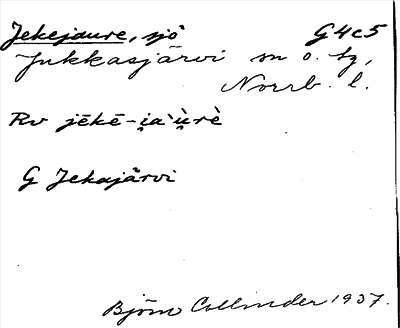 Jekejaure, sjö G4c5
Jukkasjärvi sn o. tg,
Norrb. l.
Rv jēkē-i̯a`u̯rè
G Jekajärvi
Björn Collinder 1937.